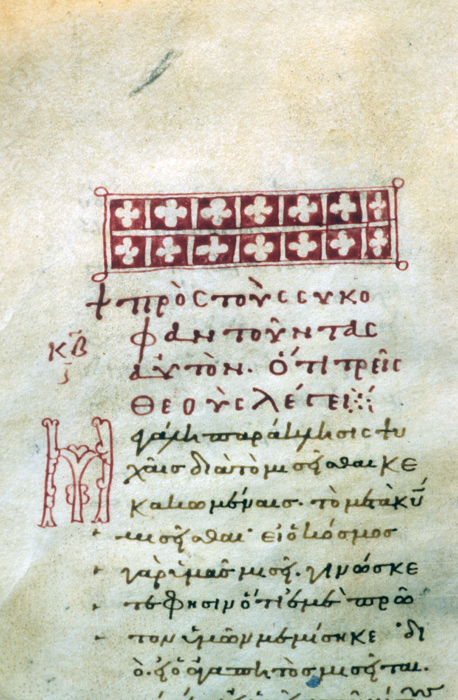 + πρὸς τοὺς συκο
φαντοῦντας
κβ
αὐτὸν. ὅτι τρεῖς
θεοὺς λέγει
Μεγάλη παράκλησις ψυ
χαῖς διὰ τὸ μισεῖσθαι κε
κακωμέναις. τὸ μετὰ κ͞υ
μισεῖσθαι· εἰ ὁ κόσμος
γὰρ ὑμᾶς μισεῖ. γινώσκε
τε φησιν ὅτι ἐμὲ πρῶ
τον ὑμῶν μεμίσηκε· δι
ὸ. εἰ ὁ ἀγαπητὸς μισεῖται.